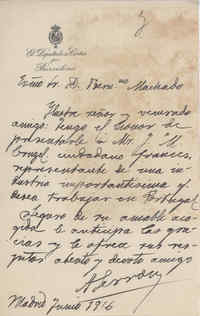 El Diputado á Cortes
por
Barcelona
Exmo Sr. D. Bern.no Machado
Ilustre señor y venerado
amigo: tengo el honor de
presentarle á Mr. M.
ciudadano frances,
representante de una in-
dustria importantisima y
desea trabajar en Portugal
Seguro de su amable aco-
gida le anticipa las gra-
cias y le ofrece sus res-
petos atento y devoto amigo
A Lerroux
Madrid Junio 1916